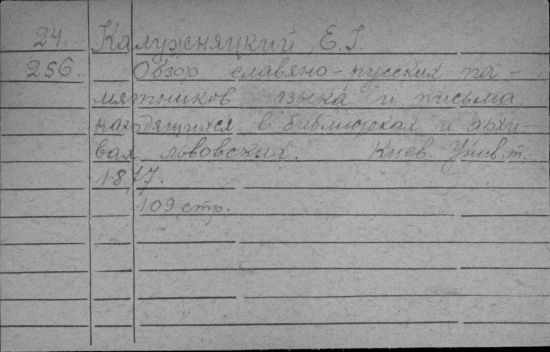 24. Калужняцкий Е. І.
256. Обзор славяно-русских па-
мятников языка и письма
находящихся в библиотеках и архи-
вах львовских. Киев. Унив. т.
1877.
109 стр.